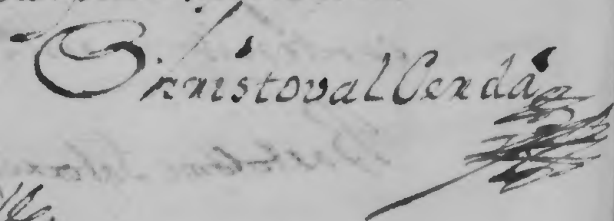 Christoval Cerdá